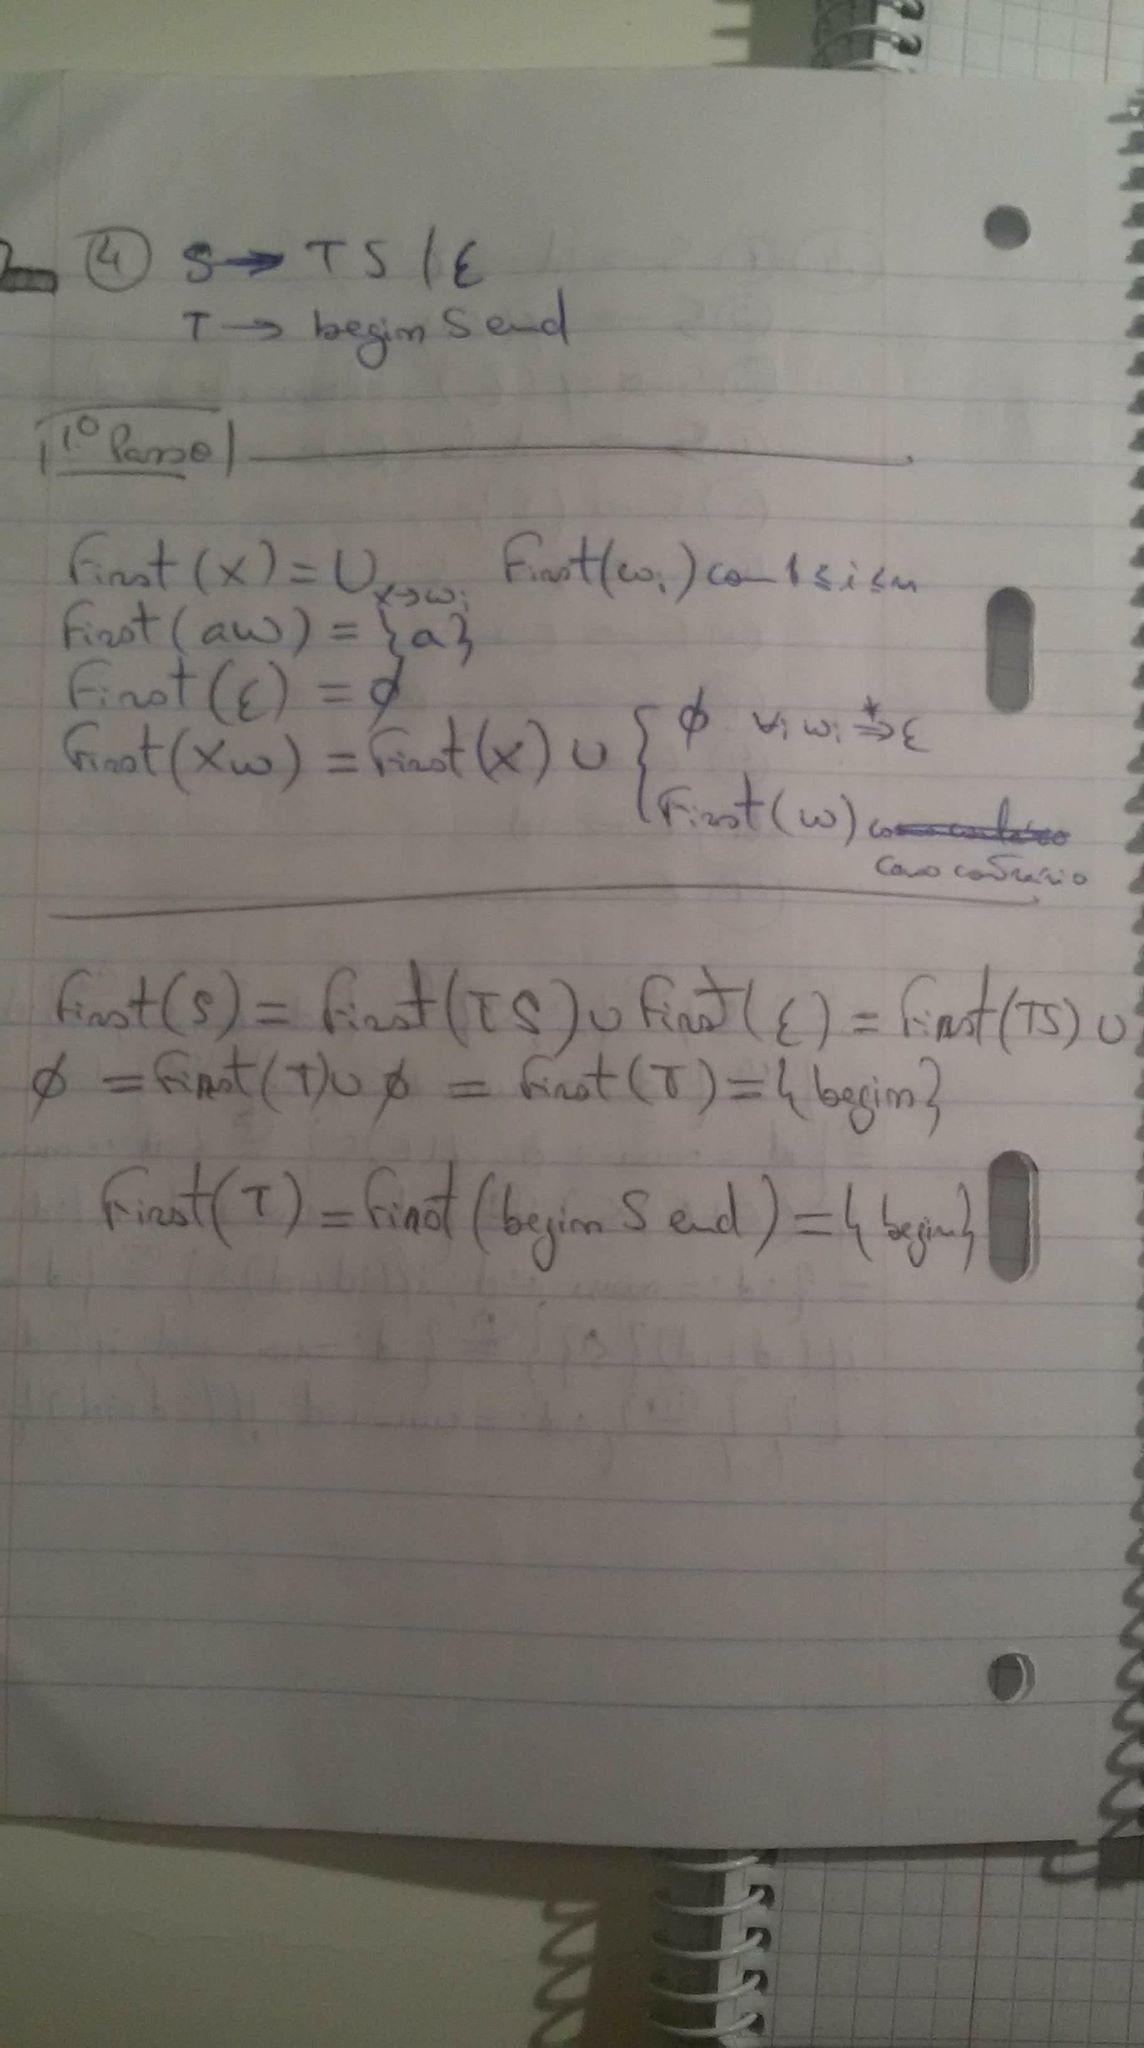 ④ S → T S | ε
T → begin S end
1º Passo
First(X) = ∪ x→wᵢ First(wᵢ) com 1 ≤ i ≤ n
First(aw) = {a}
First(ε) = ∅
First(Xw) = First(X) ∪ { ∅ ∀i wᵢ ⇒* ε
First(w)
caso contrário
First(S) = First(TS) ∪ First(ε) = First(TS) ∪
∅ = First(T) ∪ ∅ = First(T) = {begin}
First(T) = First(begin S end) = {begin}